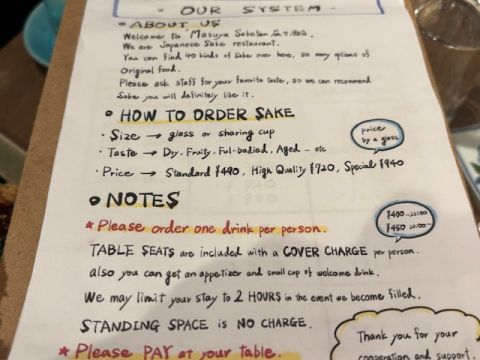 OUR SYSTEM
• ABOUT US
Welcome to Masuya Saketen
We are Japanese Sake restaurant.
You can find 40 kinds of Sake over here, so many options of
Original food.
Please ask staff for your favorite taste, so we can recommend
Sake you will definitely like it.
• HOW TO ORDER SAKE
・Size → glass or sharing cup
・Taste → Dry, Fruity, Ful-bodied, Aged … etc
・Price → Standard ¥490, High Quality ¥720, Special ¥940
price
by a glass
• NOTES
* Please order one drink per person.
¥400 ~22:00
¥450 22:00~
TABLE SEATS are included with a COVER CHARGE per person.
also you can get an appetizer and small cup of welcome drink.
We may limit your stay to 2 HOURS in the event we become filled.
STANDING SPACE is NO CHARGE.
* Please PAY at your table.
Thank you for your
cooperation and support.